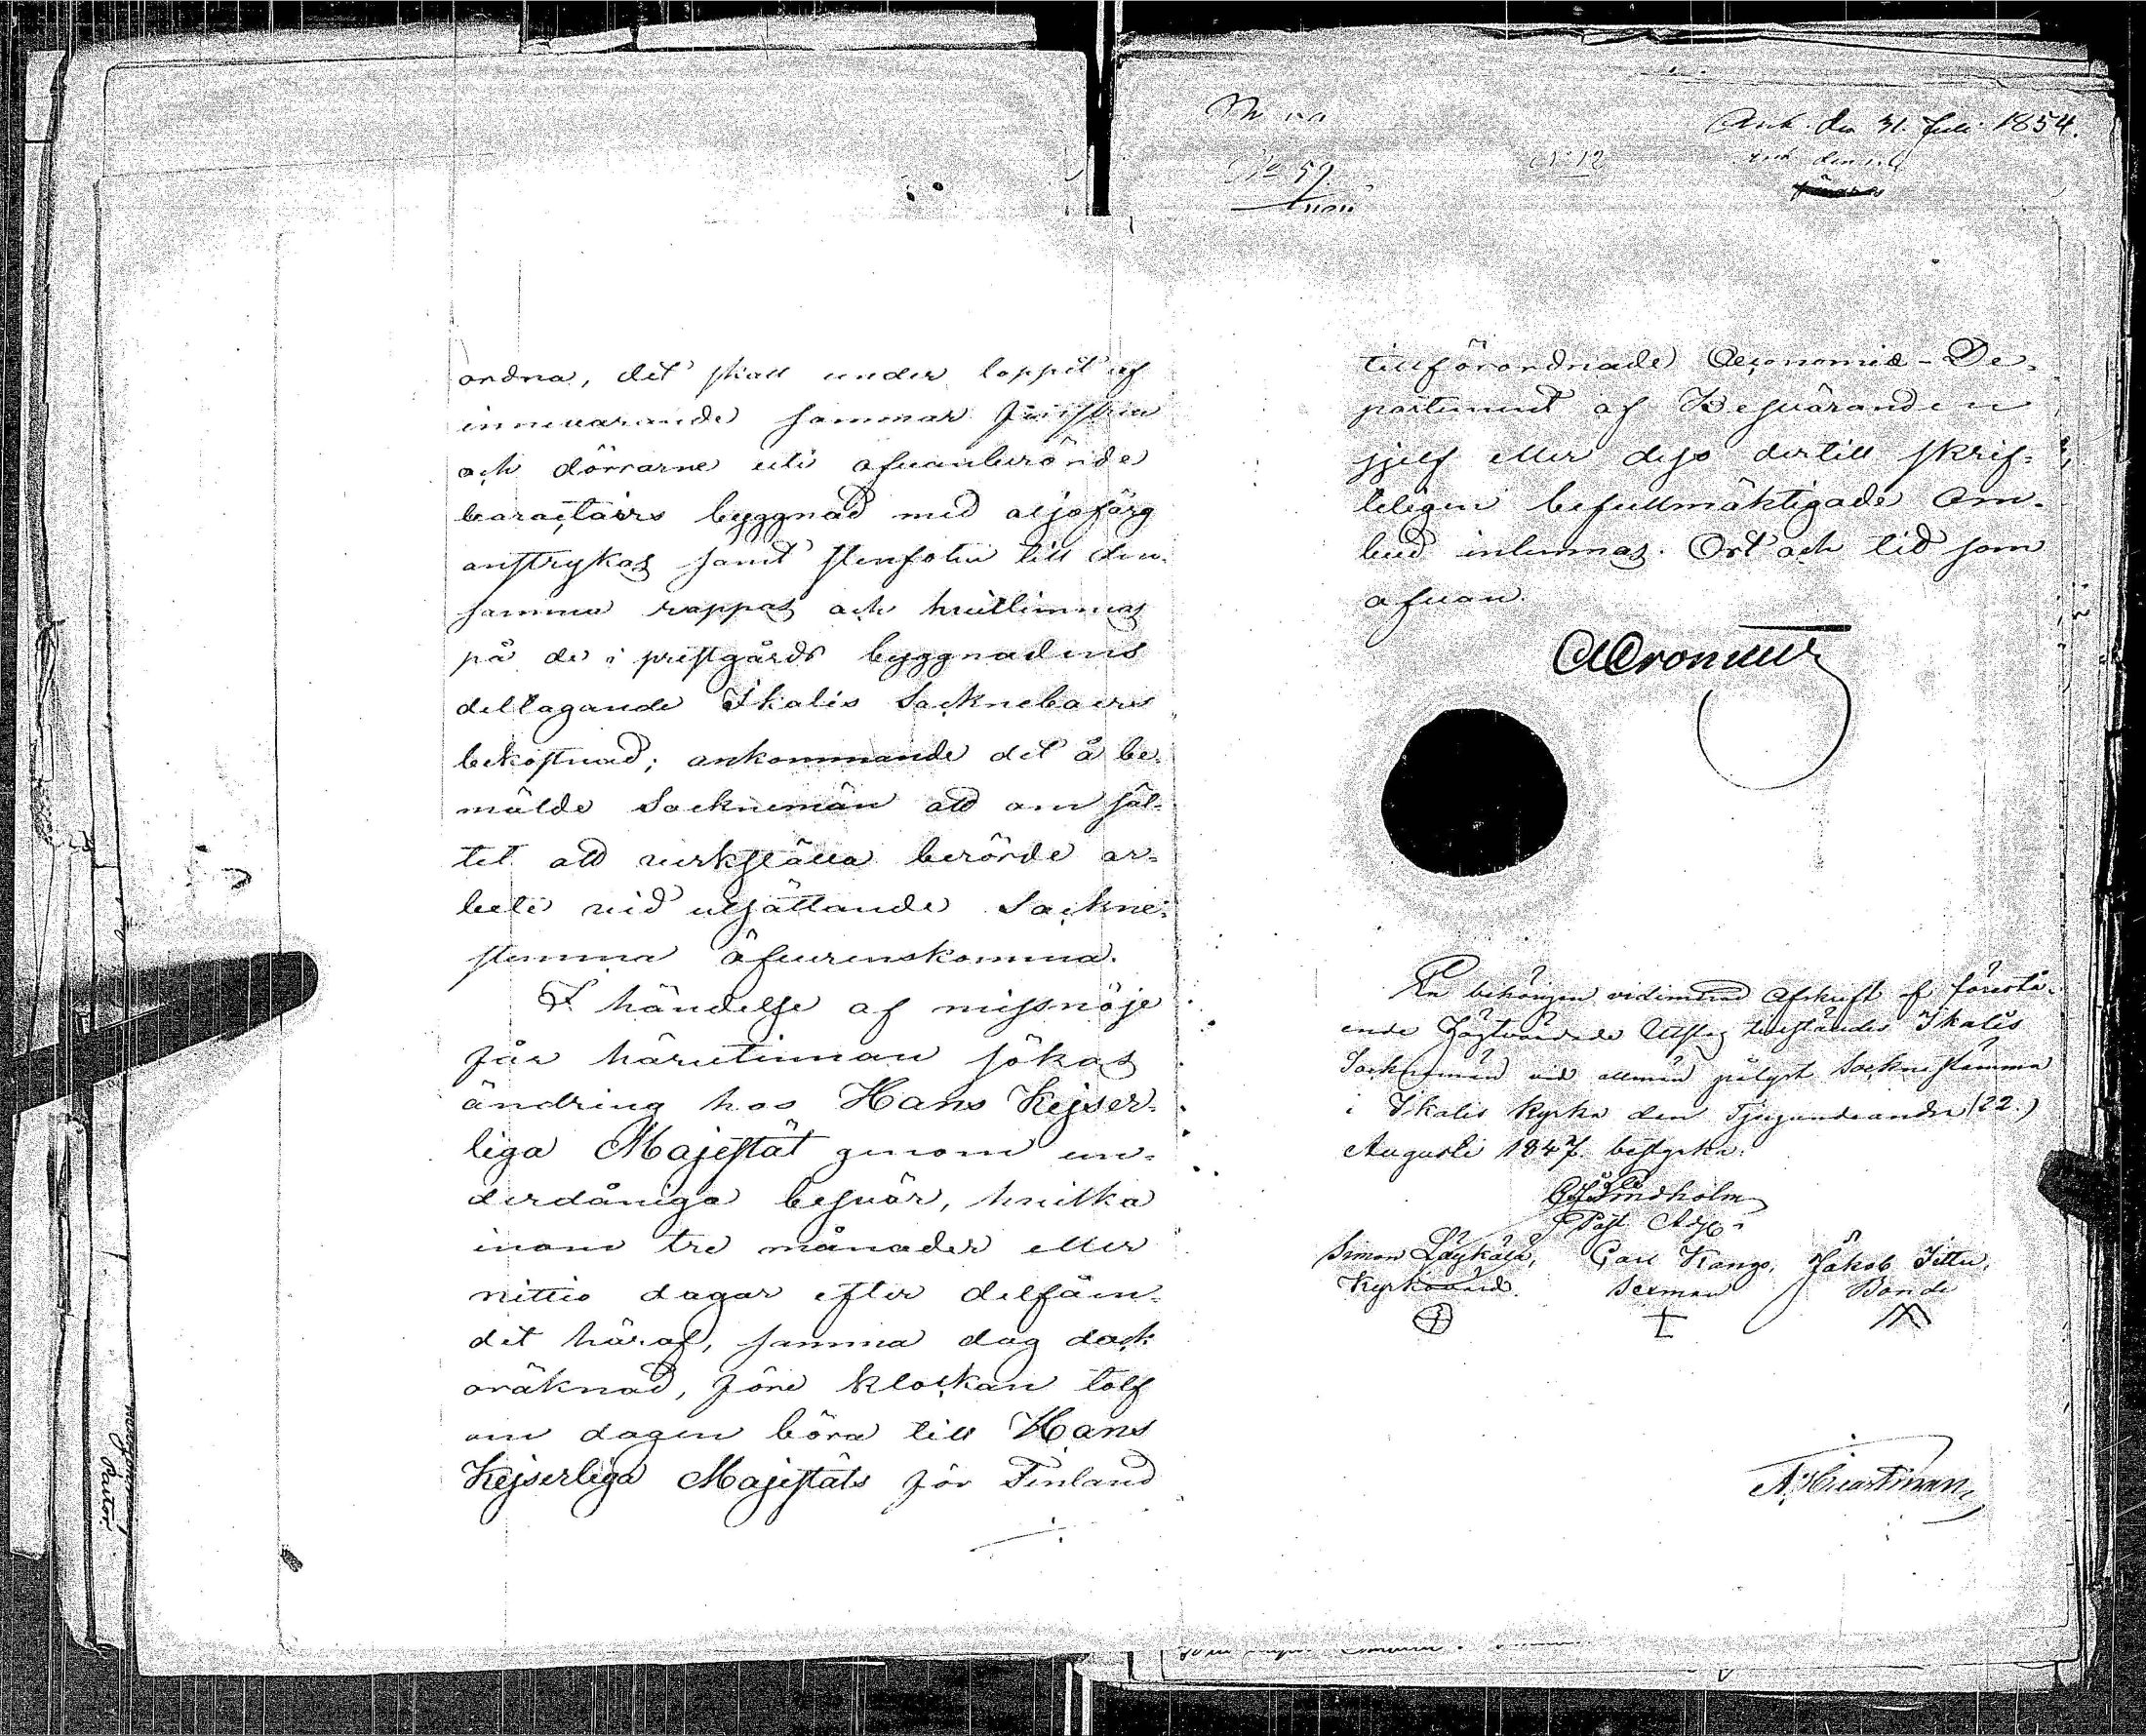 ordna, det skall under loppet af
innevarande sommar fönstren
och dörrarne uti ofvanberörde
caractairs byggnad med oljefärg
anstrykas samt stenfoten till den-
samma rappas och hvitlimmas
på de i prestgårds byggnadens
deltagande Ikalis Sockneboers
bekostnad; ankommande det å be-
mälde Socknemän att om sät-
tet att verkställa berörde ar-
bete vid utsättande Sockne-
stemma öfverenskomma.
I händelse af missnöje
får härutinnan sökas
ändring hos Hans Kejser-
liga Majestät genom un-
derdåniga besvär, hvilka
inom tre månader eller
nittio dagar efter delfåen-
det häraf, samma dag dock
oräknad, före klockan tolf
om dagen böra till Hans
Kejserliga Majestäts för Finland
Pastor.
No 59.
No 12
Ank. den 31. Juli 1854.
tillförordnade Oeconomie-De-
partement af Besväranden
sjelf eller dess dertill skrif-
teligen befullmäktigade Om-
bud inlemnas. Ort och tid som
ofvan.
En behörigen vidimerad Afskrift af förestå-
ende Högtvördade Utslag tillständes Ikalis
Socknemän vid allmän pålyst Socknestämma
i Ikalis Kyrka den Tjugundeandra (22.)
Augusti 1847. bestyrka.
Lindholm
Past. Adj.
Simon Läykälä, Carl Kango, Jakob Jittu,
Kyrkovärd. Sexman Bonde